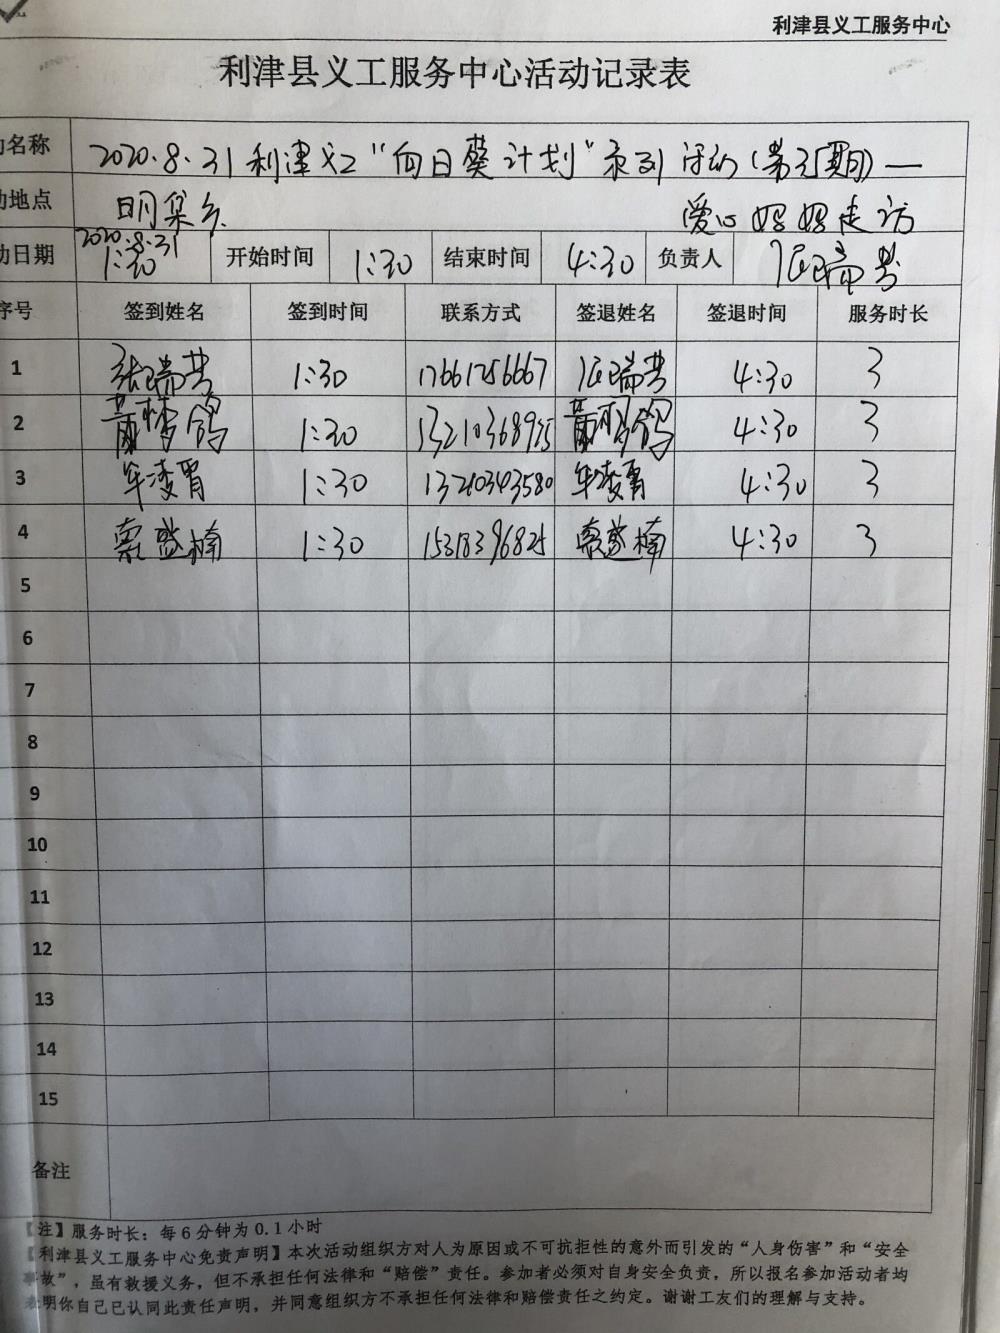 利津县义工服务中心
利津县义工服务中心活动记录表
名称 2020.8.31利津义工“向日葵计划”系列活动(第 期)—
动地点 明集乡 爱心妈妈走访
动日期 2020.8.31 1:30 开始时间 1:30 结束时间 4:30 负责人 张瑞芳
序号 签到姓名 签到时间 联系方式 签退姓名 签退时间 服务时长
1 张瑞芳 1:30 17661256667 张瑞芳 4:30 3
2 董梦鸽 1:30 13210368935 董梦鸽 4:30 3
3 牟凌霄 1:30 13210343580 牟凌霄 4:30 3
4 楠 1:30 15318396825 楠 4:30 3
5
6
7
8
9
10
11
12
13
14
15
备注
【注】服务时长：每6分钟为0.1小时
【利津县义工服务中心免责声明】本次活动组织方对人为原因或不可抗拒性的意外而引发的“人身伤害”和“安全
事故”，虽有救援义务，但不承担任何法律和“赔偿”责任。参加者必须对自身安全负责，所以报名参加活动者均
表明你自己已认同此责任声明，并同意组织方不承担任何法律和赔偿责任之约定。谢谢工友们的理解与支持。